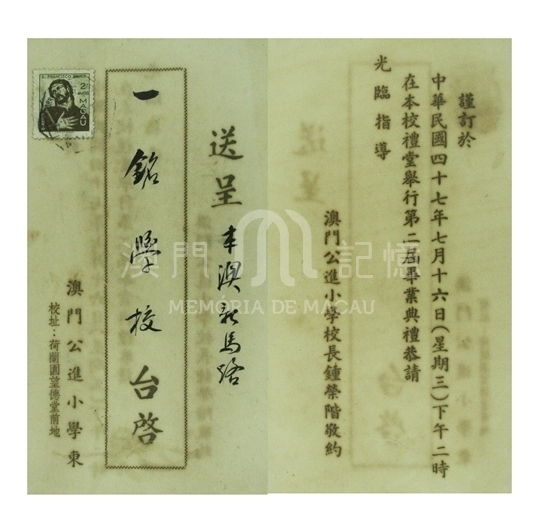 謹訂於
中華民國四十七年七月十六日(星期三)下午二時
在本校禮堂舉行第二屆畢業典禮恭請
光臨指導
澳門公進小學校長鍾榮階敬約
送呈
本澳新馬路
一銘學校台啓
澳門公進小學柬
校址：荷蘭園望德堂前地
S. FRANCISCO XAVIER
2
MACAU
澳門記憶
MEMÓRIA DE MACAU